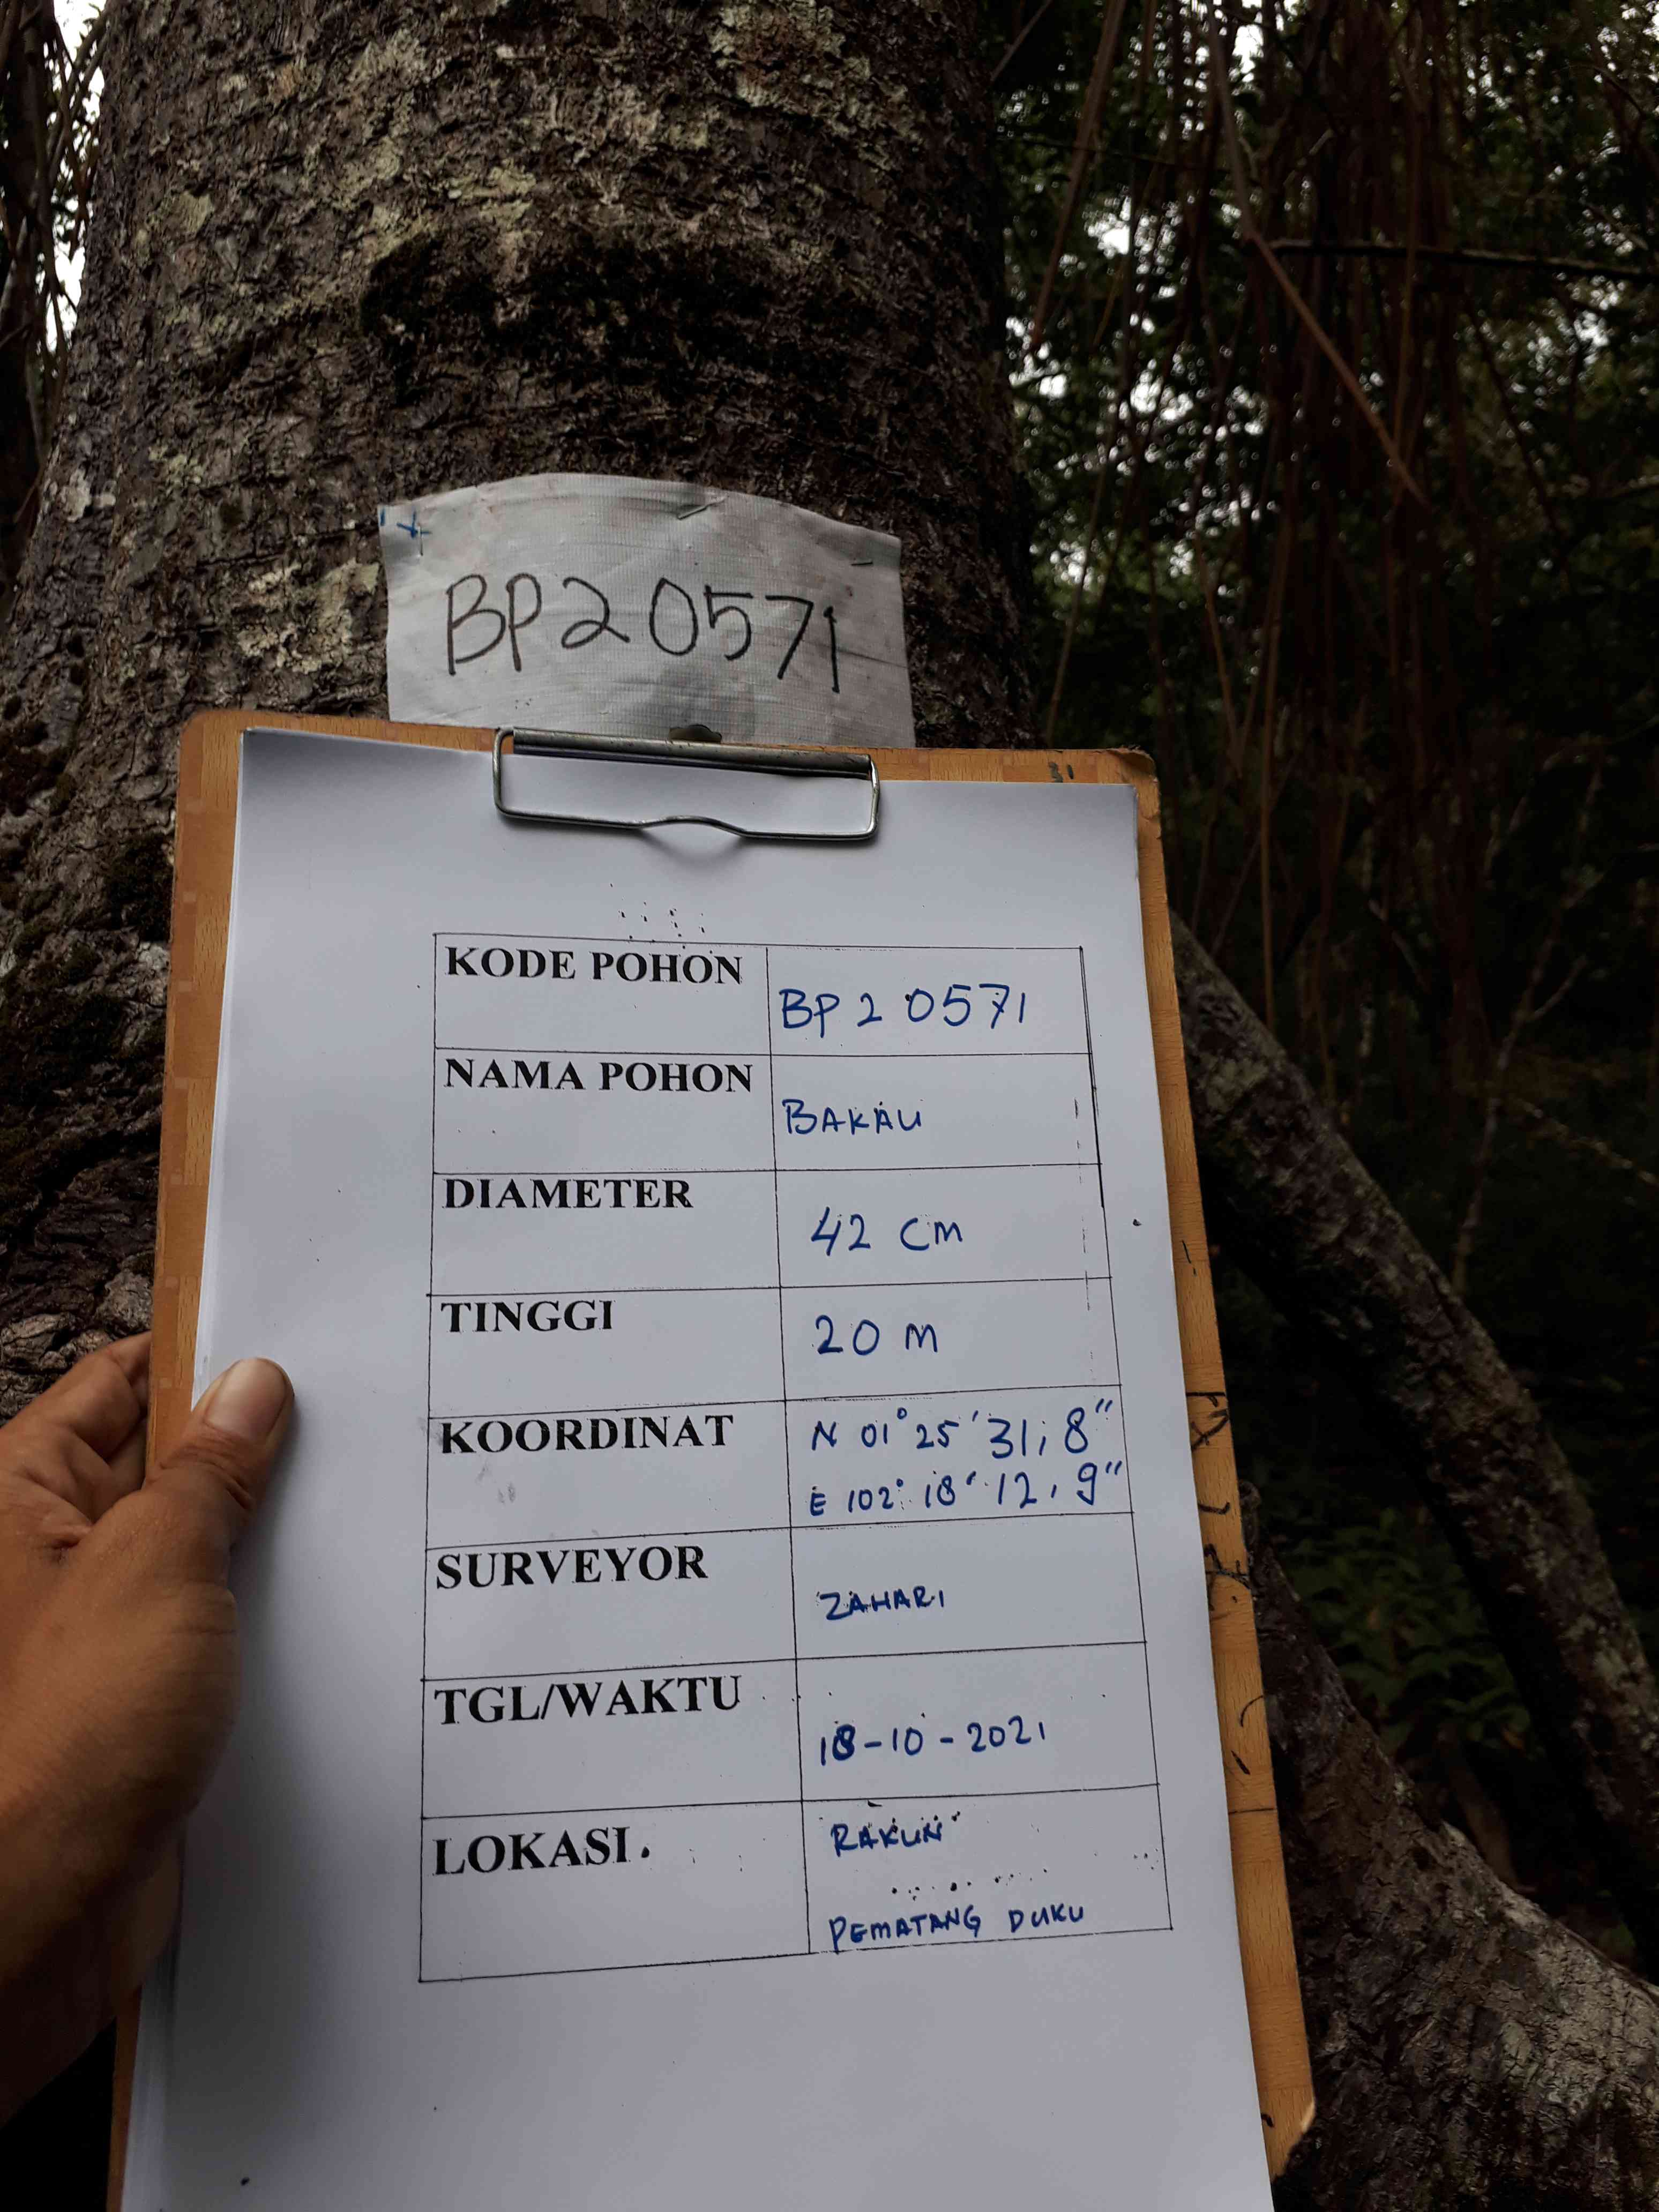 BP2 0571
KODE POHON
BP2 0571
NAMA POHON
BAKAU
DIAMETER
42 cm
TINGGI
20 m
KOORDINAT
N 01° 25' 31,8"
E 102° 18' 12,9"
SURVEYOR
ZAHARI
TGL/WAKTU
18-10-2021
LOKASI.
RAKUN
PEMATANG DUKU